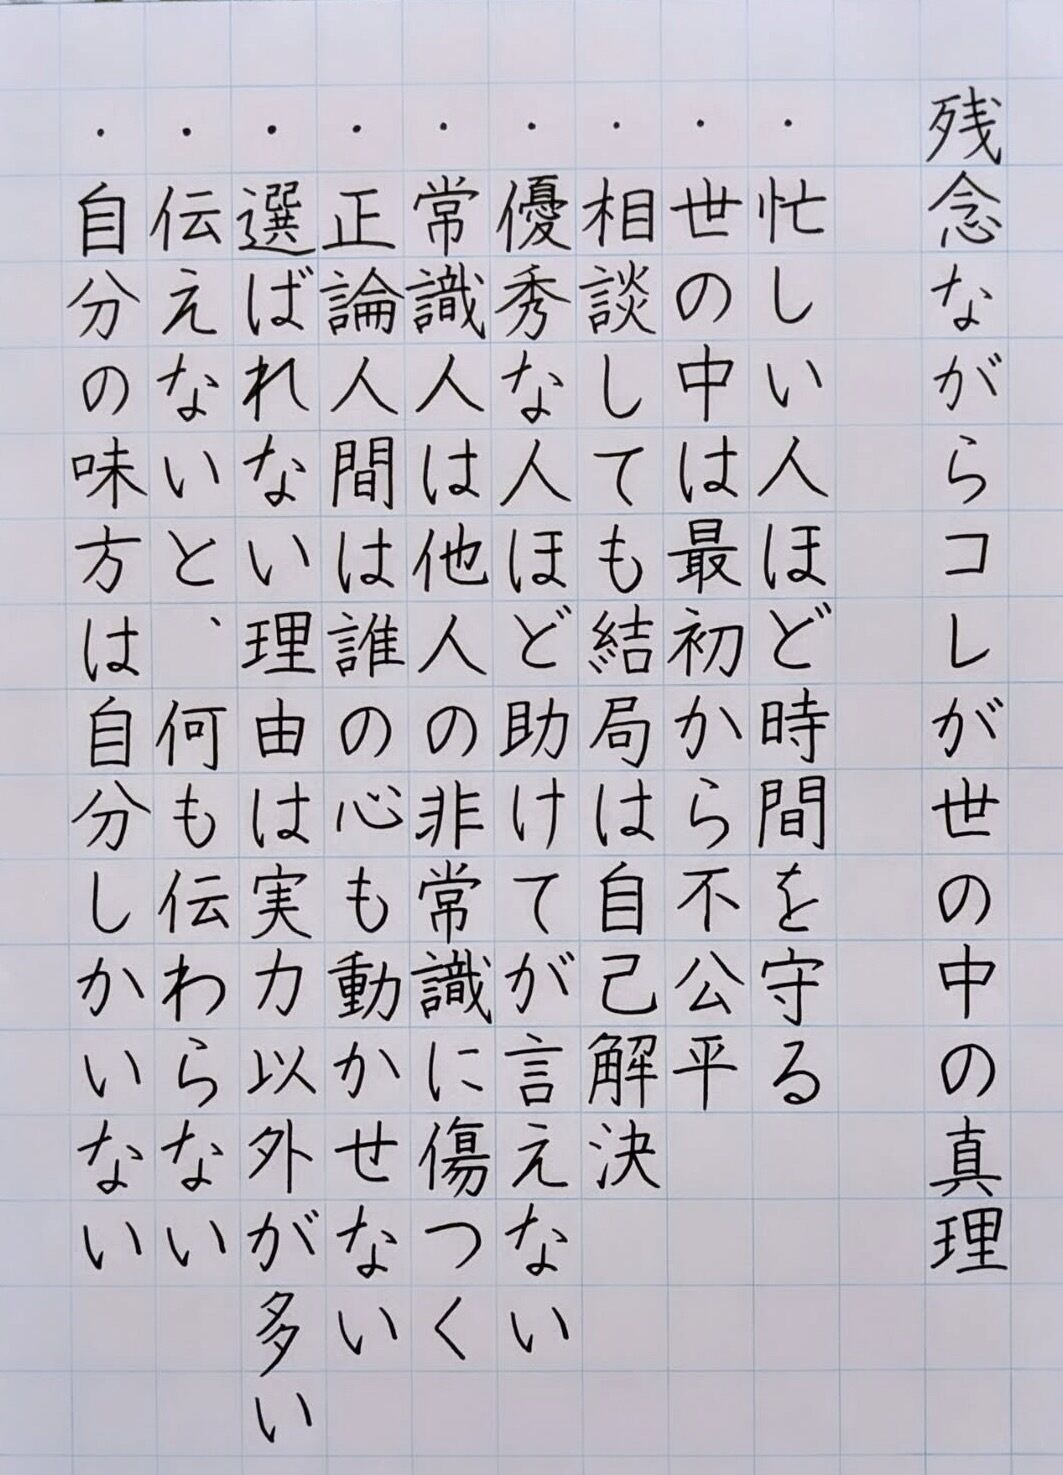 残念ながらコレが世の中の真理
・忙しい人ほど時間を守る
・世の中は最初から不公平
・相談しても結局は自己解決
・優秀な人ほど助けてが言えない
・常識人は他人の非常識に傷つく
・正論人間は誰の心も動かせない
・選ばれない理由は実力以外が多い
・伝えないと、何も伝わらない
・自分の味方は自分しかいない